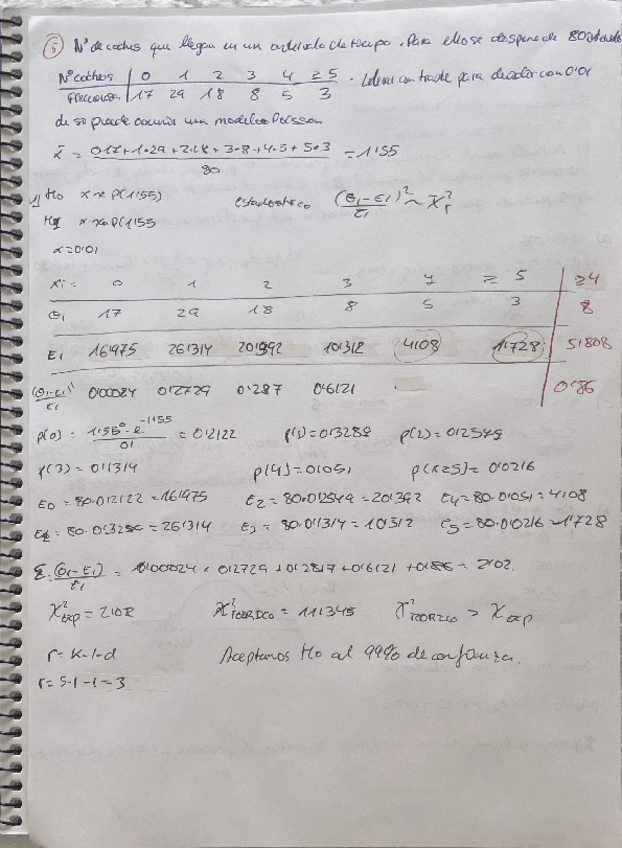 5 Nº de coches que llegan en un intervalo de tiempo. Para ello se dispone de 80
Nº coches | 0 1 2 3 4 ≥5 . para con 0'01
Frecuencia | 17 29 18 8 5 3
de si puede un modelo Poisson
x̄ = 0·17+1·29+2·18+3·8+4·5+5·3 / 80 = 1'55
1) H0 x ~ P(1'55)
estadístico (θi-Ei)²/Ei ~ χ²r
H1 x P(1'55
α=0'01
xi= 0 1 2 3 4 ≥ 5 | ≥4
θi 17 29 18 8 5 3 | 8
Ei 16'975 26'314 20'392 10'512 4'08 1'728 | 5'808
(θi-Ei)²/Ei 0'00024 0'2729 0'287 0'6121 | 0'86
p(0) = 1'55⁰·e^-1'55 / 0! = 0'2122 p(1)=0'3289 p(2)=0'2549
p(3) = 0'1314 p(4)=0'051 p(x≥5)= 0'0216
E0 = 80·0'2122 = 16'975 E2 = 80·0'2549 = 20'392 E4 = 80·0'051 = 4'08
E1 = 80·0'3289 = 26'314 E3 = 80·0'1314 = 10'512 E5 = 80·0'0216 = 1'728
Σ (θi-Ei)/Ei = 0'00024 + 0'2729 + 0'287 + 0'6121 + 0'86 = 2'02.
χ²EXP = 2'02 χ²TEÓRICO = 11'345 χ²TEÓRICO > χEXP
r = K-1-d Aceptamos H0 al 99% de confianza.
r = 5-1-1 = 3